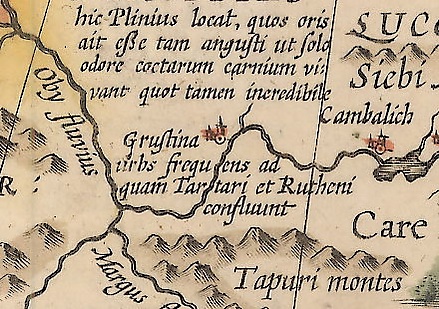 hic Plinius locat, quos oris
ait eſſe tam anguſti ut ſolo
odore coctarum carnium vi:
vant quot tamen incredibile
SUCC
Siebi
Cambalich
Oby fluvius
Gruſtina
urbs frequens ad
quam Tartari et Rutheni
confluunt
R :
Care
Margus
Tapuri montes